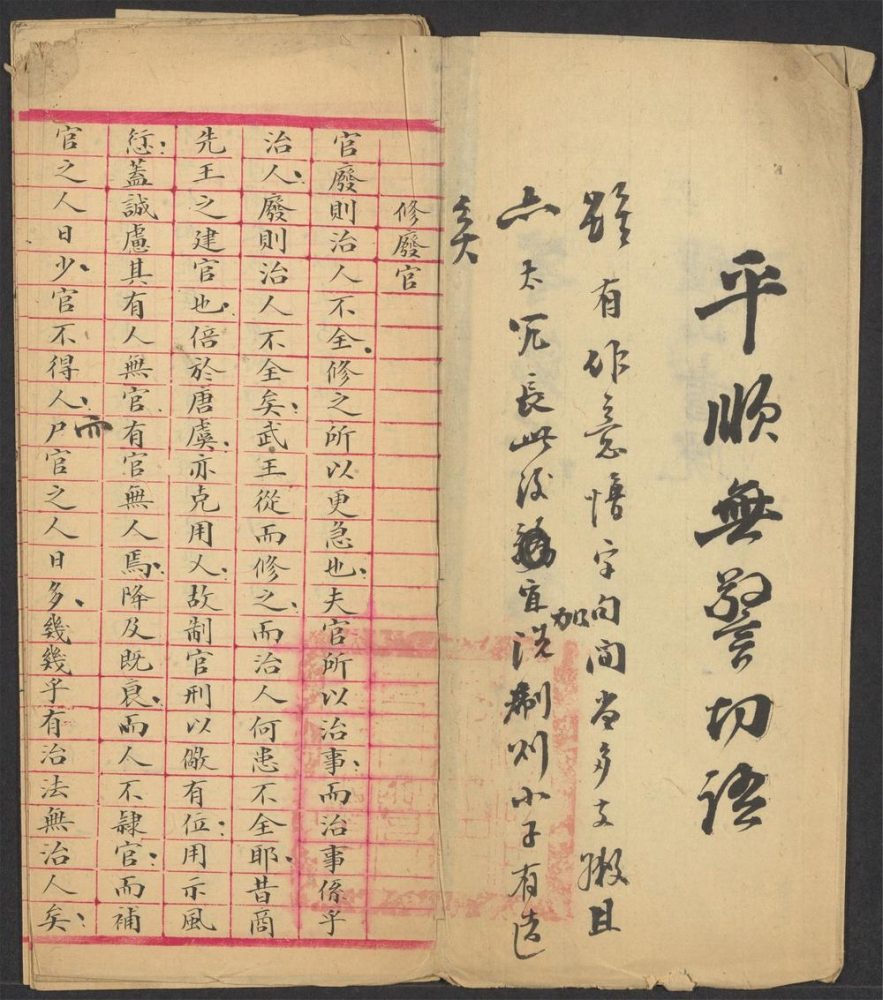 平順無警切語
雖有作意惜字句間尚多支且
亦太冗長此後宜加洗刷則小子有造
矣
修廢官
官廢則治人不全修之所以更急也夫官所以治事而治事係乎
治人廢則治人不全矣武王從而修之而治人何患不全耶昔商
先王之建官也倍於唐虞亦克用乂故制官刑以儆有位用示風
愆蓋誠慮其有人無官有官無人焉降及既衰而人不隸官而補
官之人日少官不得人而尸官之人日多幾幾乎有治法無治人矣